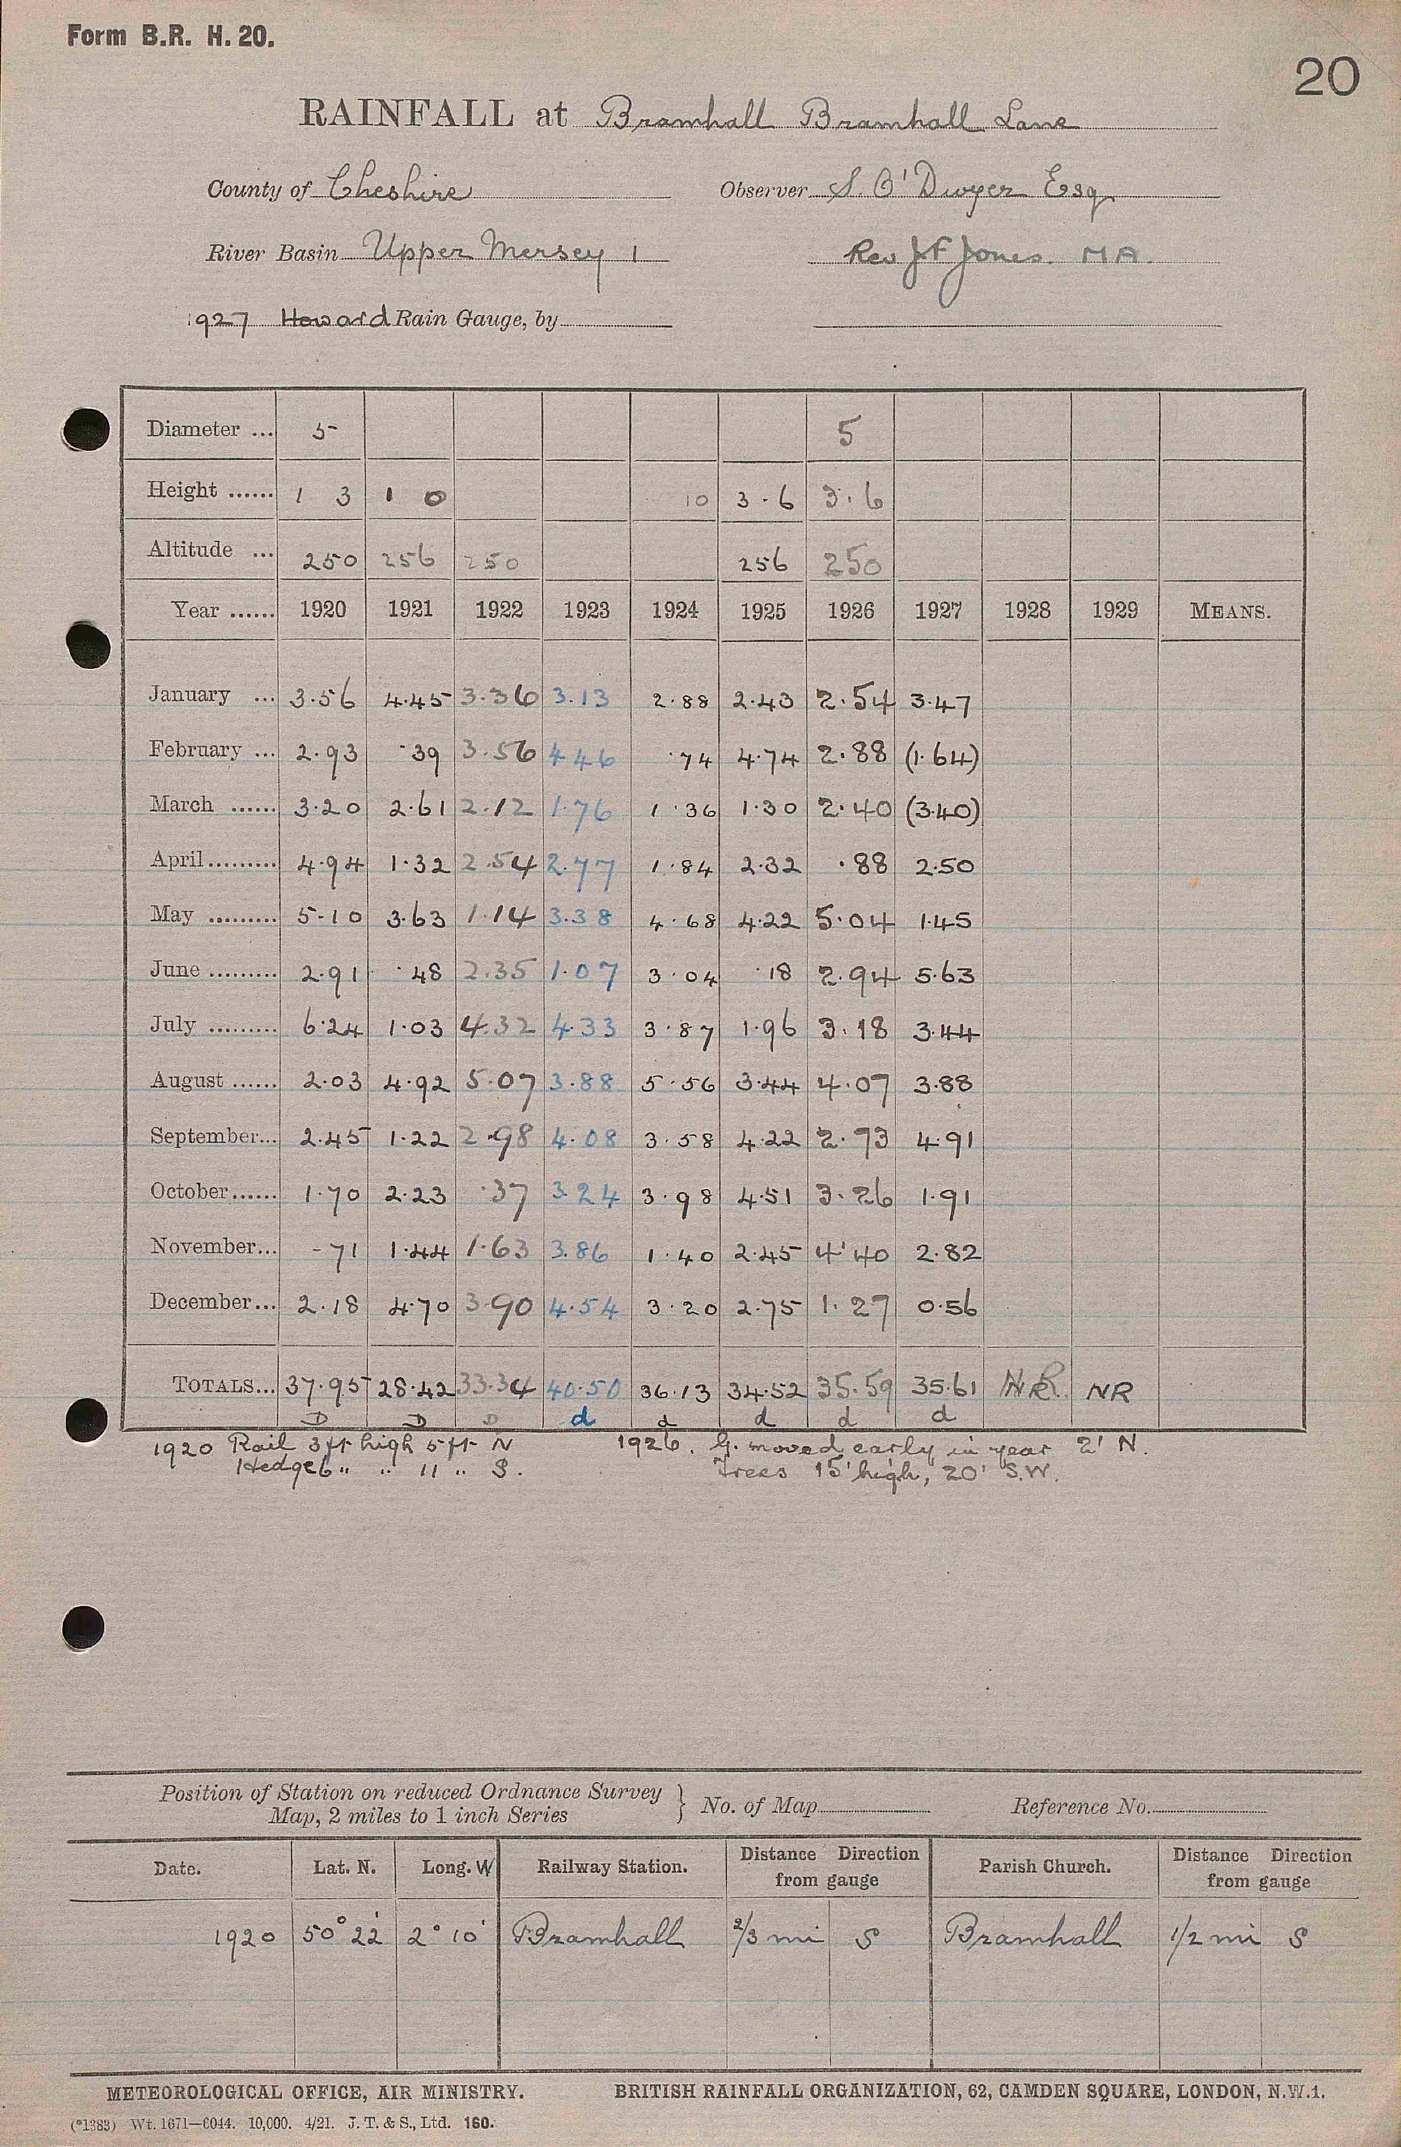 Form B.R. H. 20.
20
RAINFALL at Bramhall Bramhall Lane
County of Cheshire Observer S. O'Dwyer Esq
River Basin Upper Mersey 1 Rev J F Jones. M A.
1927 Howard Rain Gauge, by
Diameter ... 5 5
Height ...... 1 3 1 0 10 3.6 3.6
Altitude ... 250 256 250 256 250
Year ...... 1920 1921 1922 1923 1924 1925 1926 1927 1928 1929 MEANS.
January ... 3.56 4.45 3.36 3.13 2.88 2.43 2.54 3.47
February ... 2.93 .39 3.56 4.46 .74 4.74 2.88 (1.64)
March ...... 3.20 2.61 2.12 1.76 1.36 1.30 2.40 (3.40)
April ......... 4.94 1.32 2.54 2.77 1.84 2.32 .88 2.50
May ......... 5.10 3.63 1.14 3.38 4.68 4.22 5.04 1.45
June ......... 2.91 .48 2.35 1.07 3.04 .18 2.94 5.63
July ......... 6.24 1.03 4.32 4.33 3.87 1.96 3.18 3.44
August ...... 2.03 4.92 5.07 3.88 5.56 3.44 4.07 3.88
September... 2.45 1.22 2.98 4.08 3.58 4.22 2.73 4.91
October ...... 1.70 2.23 .37 3.24 3.98 4.51 3.26 1.91
November... .71 1.44 1.63 3.86 1.40 2.45 4.40 2.82
December... 2.18 4.70 3.90 4.54 3.20 2.75 1.27 0.56
TOTALS... 37.95 28.42 33.34 40.50 36.13 34.52 35.59 35.61 NR. NR
D D D d d d d d
1920 Rail 3ft high 5ft N 1926. G. moved early in year 2' N.
Hedge 6 " " 11 " S. Trees 15' high, 20' S.W.
Position of Station on reduced Ordnance Survey Map, 2 miles to 1 inch Series } No. of Map Reference No.
Date. Lat. N. Long. W Railway Station. Distance Direction from gauge Parish Church. Distance Direction from gauge
1920 50° 22' 2° 10' Bramhall 2/3 mi S Bramhall 1/2 mi S
METEOROLOGICAL OFFICE, AIR MINISTRY. BRITISH RAINFALL ORGANIZATION, 62, CAMDEN SQUARE, LONDON, N.W.1.
(*1383) Wt. 1671—6044. 10,000. 4/21. J. T. & S., Ltd. 160.